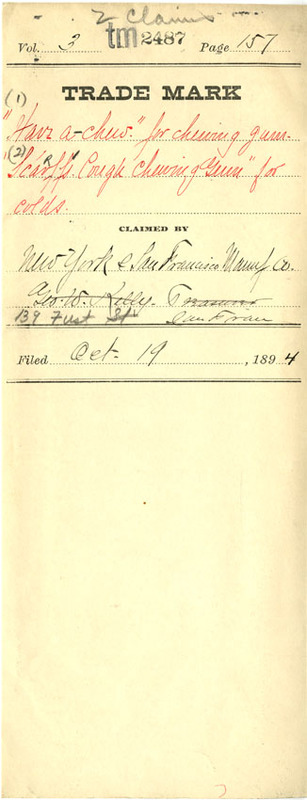 2 Claims
tm 2487
Vol. 3 Page 157
TRADE MARK
(1)
"Hav a-chew." for chewing gum.
(2) Scarff's Cough Chewing Gum" for
colds.
CLAIMED BY
New York & San Francisco Manuf. Co.
Geo. W. Kelly. Treasurer
139 First St San Fran
Filed Oct. 19, 1894